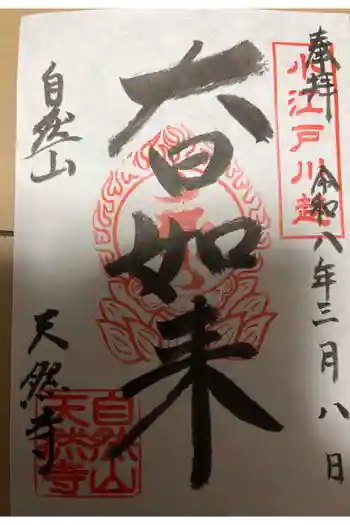 奉拝
小江戸川越
令和八年三月八日
大日如来
自然山
天然寺
自然山
天然寺